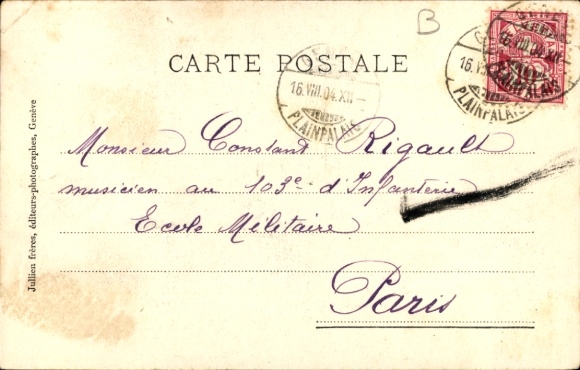 B
CARTE POSTALE
16.VIII.04.XII
PLAINPALAIS
16.VIII.04.XII
PLAINPALAIS
Monsieur Constant Rigault
musicien au 103e d'Infanterie
Ecole Militaire
Paris
Jullien frères, éditeurs-photographes, Genève